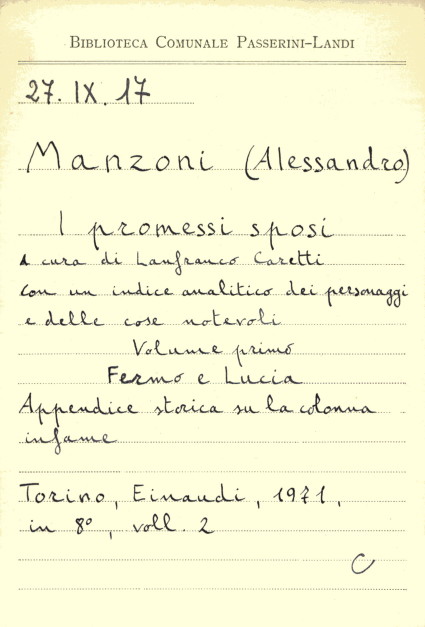 BIBLIOTECA COMUNALE PASSERINI-LANDI
27. IX. 17
Manzoni (Alessandro)
I promessi sposi
a cura di Lanfranco Caretti
con un indice analitico dei personaggi
e delle cose notevoli
Volume primo
Fermo e Lucia
Appendice storica su la colonna
infame
Torino, Einaudi, 1971,
in 8°, voll. 2
C